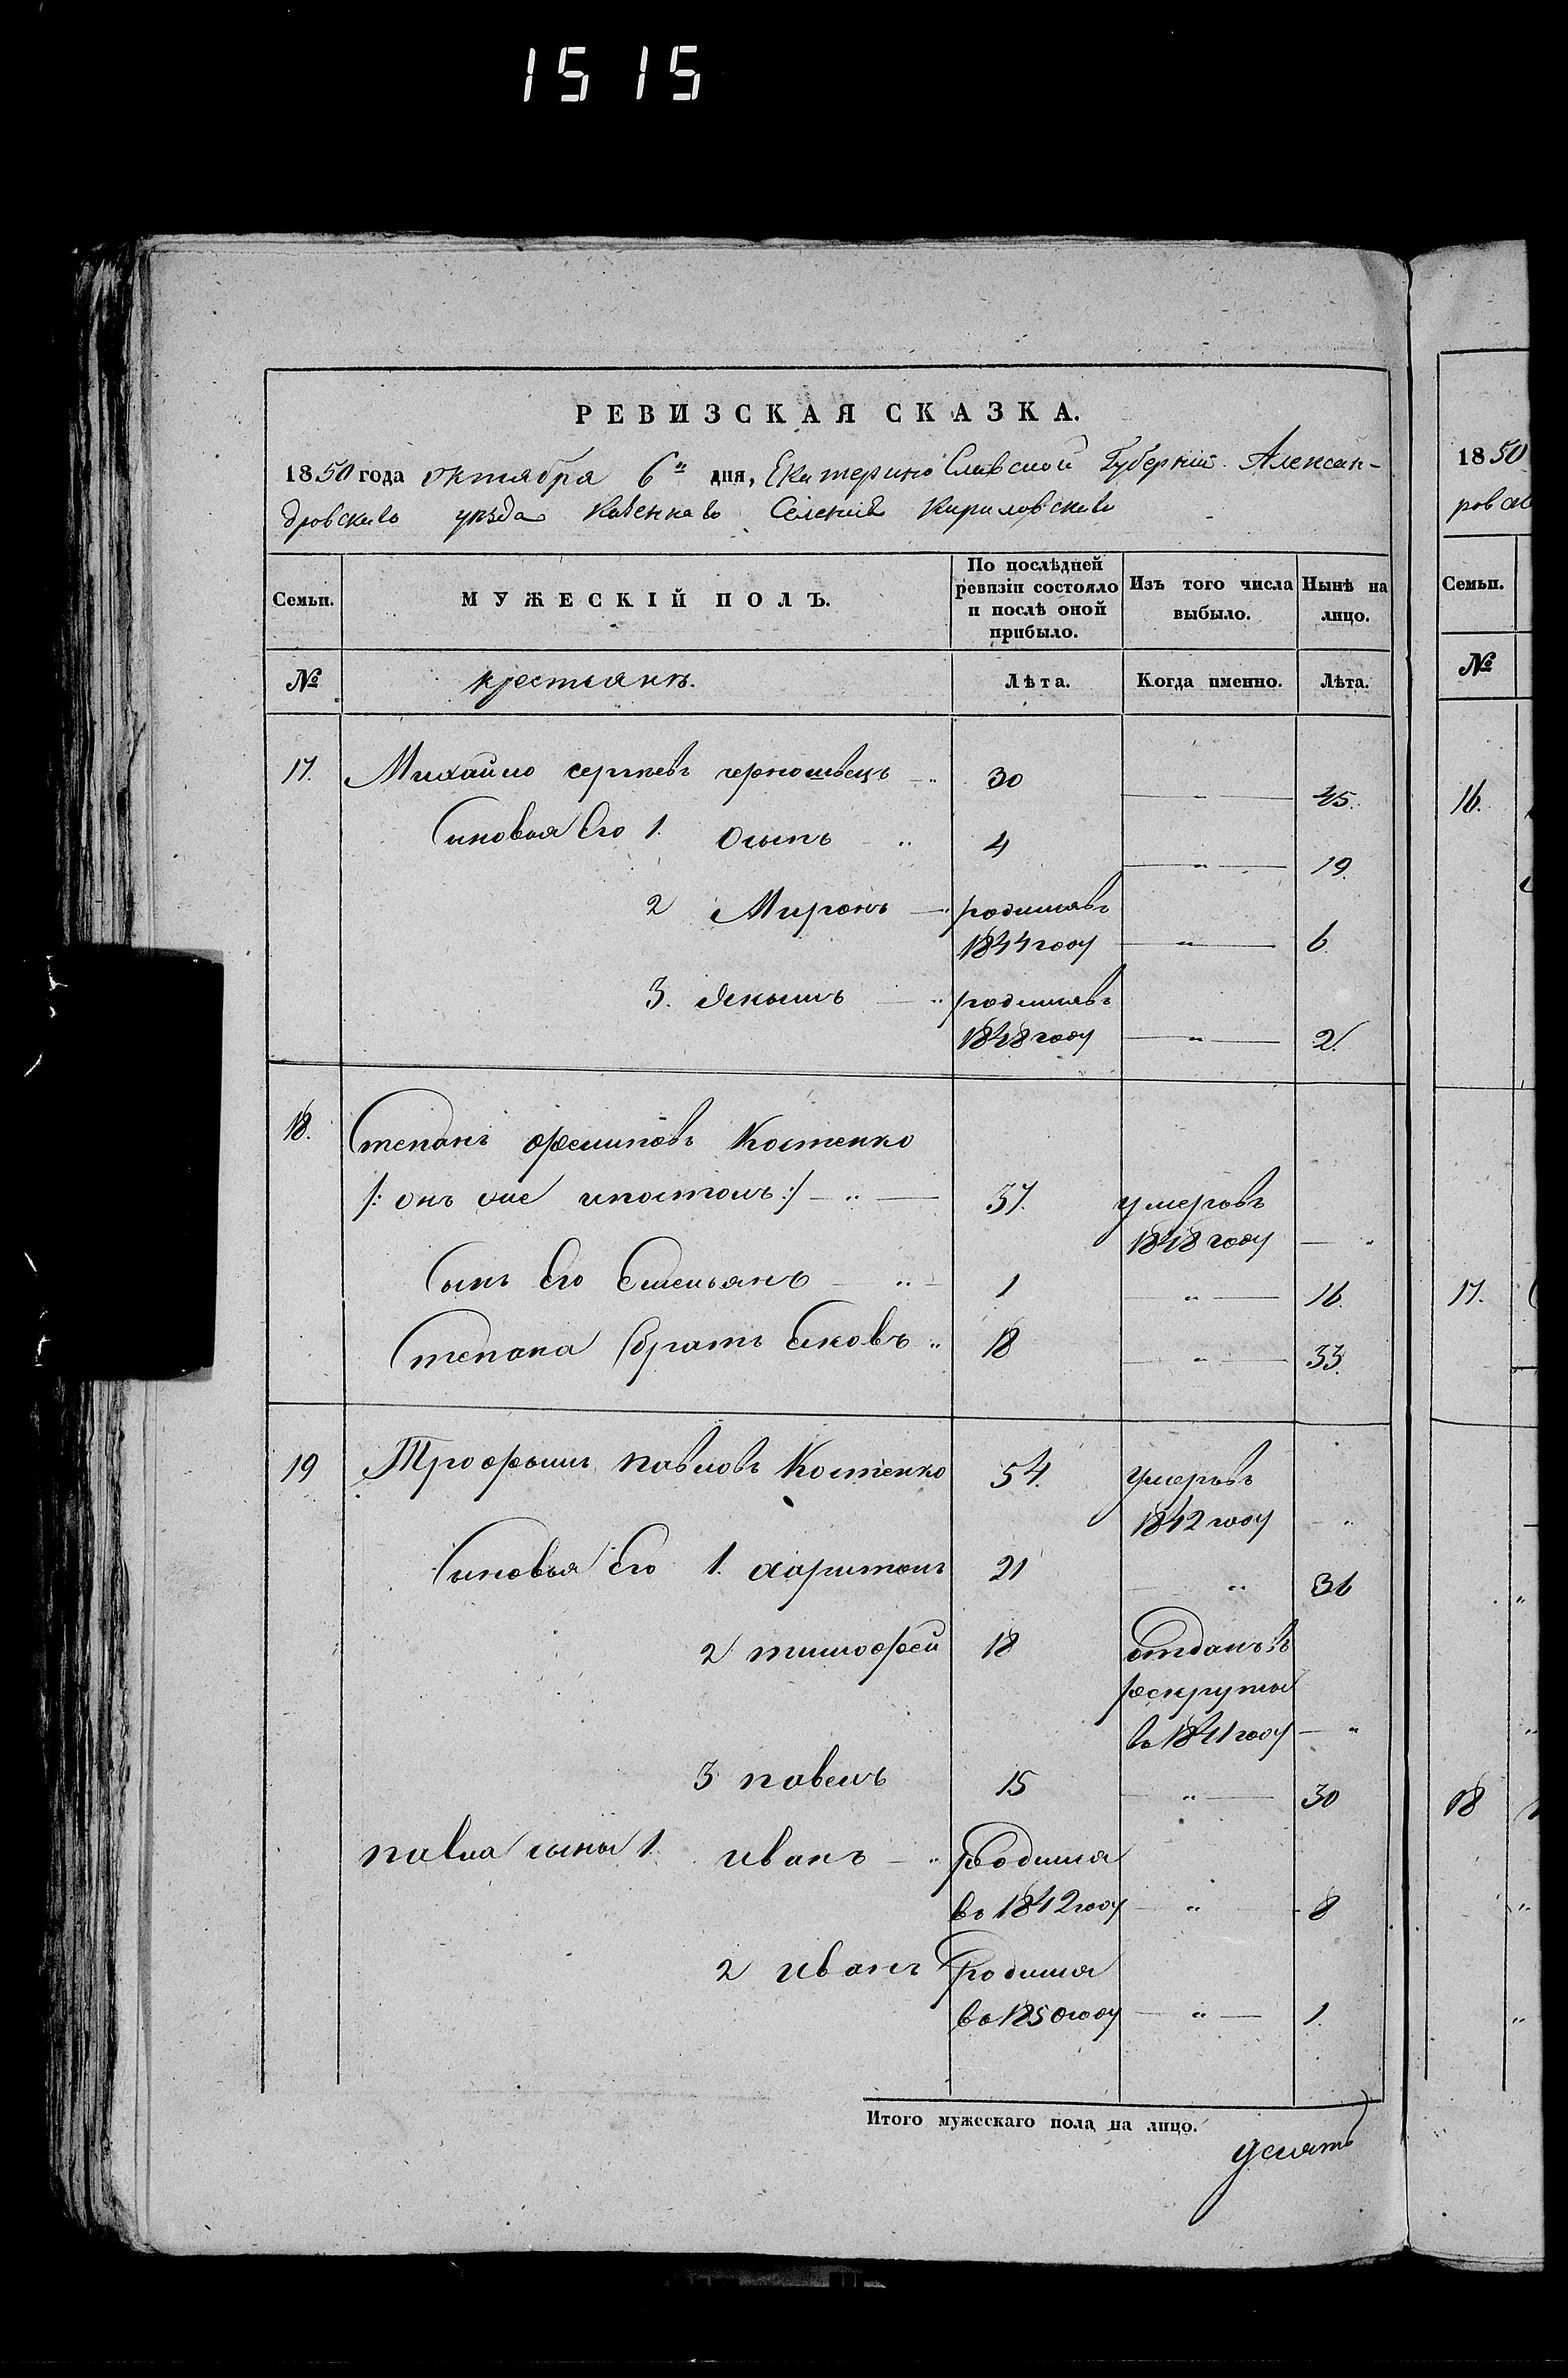 1515
РЕВИЗСКАЯ СКАЗКА.
1850 года октября 6го дня, Екатерино Славской Губерніи Алексан-
дровскаго уезда Казеннаго Селенія Кириловскаго
Семьи.
МУЖЕСКІЙ ПОЛЪ.
По послѣдней ревизіи состояло и послѣ оной прибыло.
Изъ того числа выбыло.
Нынѣ на лицо.
№ крестьянъ. Лѣта. Когда именно. Лѣта.
17. Михайло сергѣевъ чорношвецъ 30 45.
Синовья Его 1. Осыпъ 4 19.
2 Миронъ родився
1844 году 6
3. Якымъ родився
1848 году 2.
18. Степанъ филиповъ Костенко
/: онъ же апостолъ :/ 37. умеръ въ
1848 году
Сынъ Его Емельянъ 1 16.
Степана братъ Яковъ 18 33.
19 Трофымъ павловъ Костенко 54. умеръ въ
1842 году
Синовья Его 1. харитонъ 21 36
2 тимофей 18 отданъ въ
рекруты
во 1841 году
3 павелъ 15 30
павла сыны 1. иванъ Родился
во 1842 году 8
2 иванъ Родился
во 1850 году 1.
Итого мужескаго пола на лицо.
десять
1850
Семьи.
№
16.
17.
18